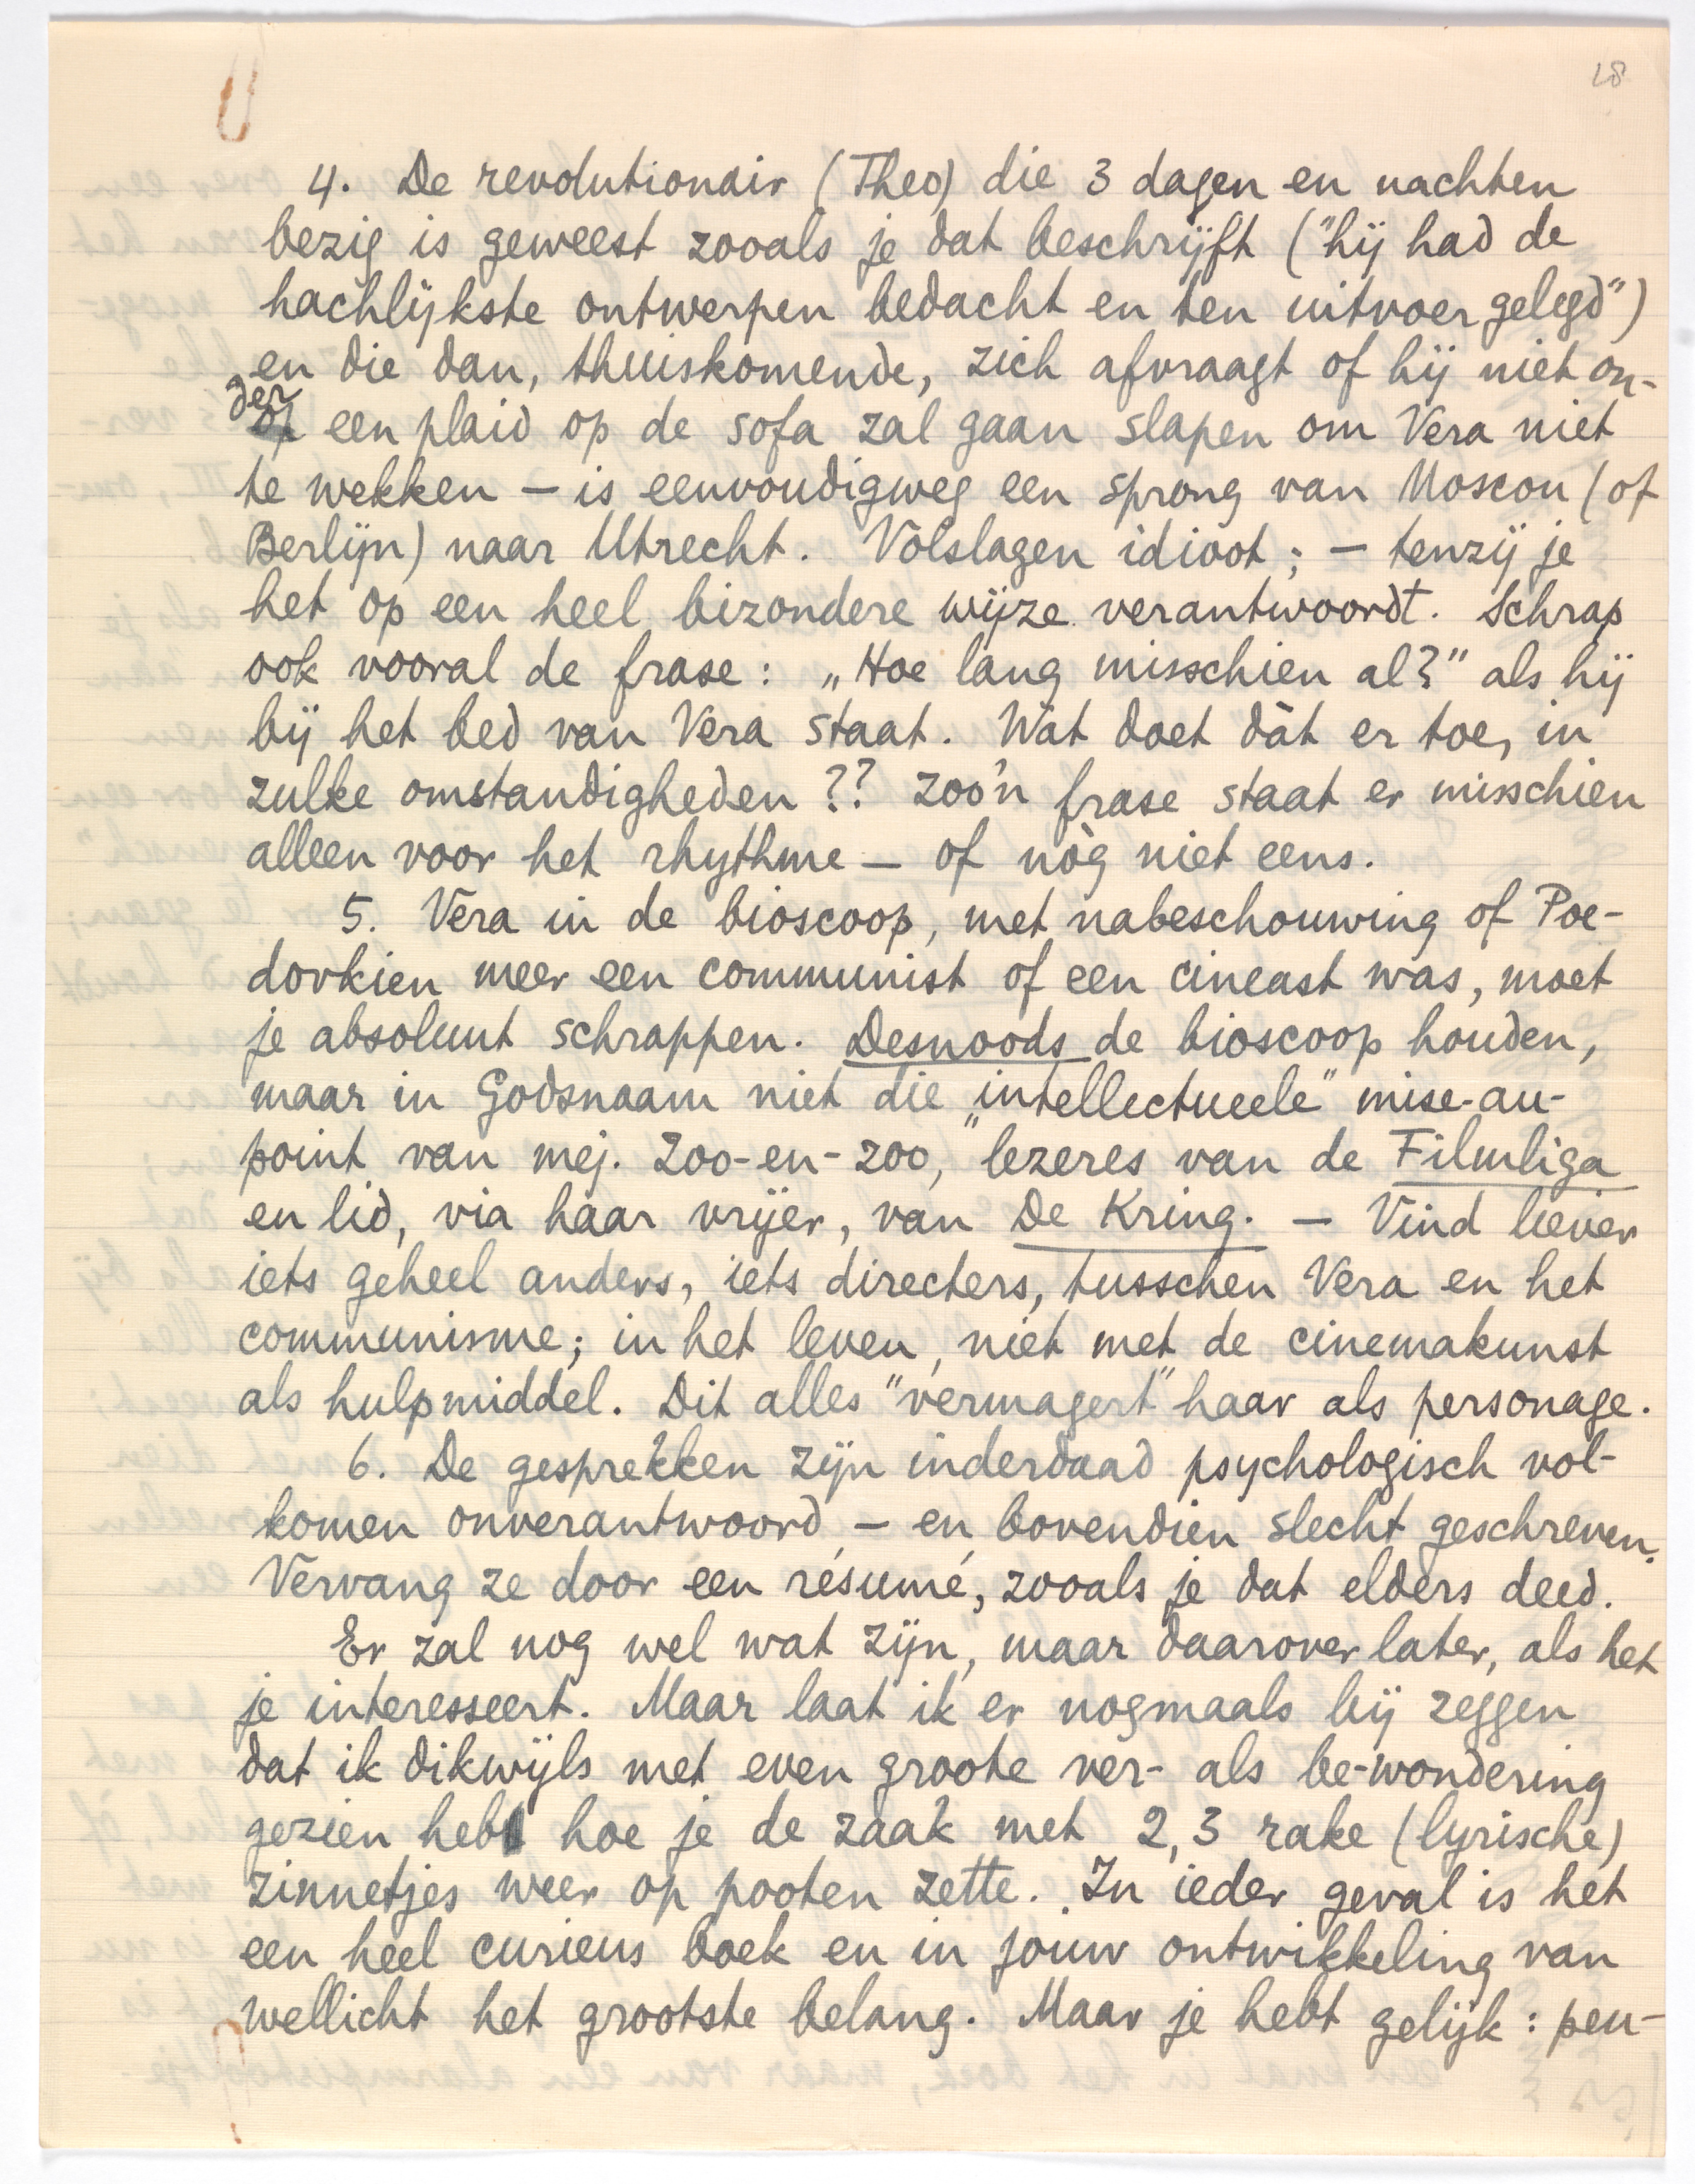 28
4. De revolutionair (Theo) die 3 dagen en nachten
bezig is geweest zooals je dat beschrijft ("hij had de
hachlijkste ontwerpen bedacht en ten uitvoer gelegd")
en die dan, thuiskomende, zich afvraagt of hij niet on-
der een plaid op de sofa zal gaan slapen om Vera niet
te wekken — is eenvoudigweg een sprong van Moscou (of
Berlijn) naar Utrecht. Volslagen idioot; — tenzij je
het op een heel bizondere wijze verantwoordt. Schrap
ook vooral de frase: „Hoe lang misschien al?" als hij
bij het bed van Vera staat. Wat doet dàt er toe, in
zulke omstandigheden?? Zoo'n frase staat er misschien
alleen voor het rhythme — of nòg niet eens.
5. Vera in de bioscoop, met nabeschouwing of Poe-
dovkien meer een communist of een cineast was, moet
je absoluut schrappen. Desnoods de bioscoop houden,
maar in Godsnaam niet die „intellectueele" mise-au-
point van mej. Zoo-en-zoo, lezeres van de Filmliga
en lid, via haar vrijer, van De Kring. — Vind liever
iets geheel anders, iets directers, tusschen Vera en het
communisme; in het leven, niet met de cinemakunst
als hulpmiddel. Dit alles "vermagert" haar als personage.
6. De gesprekken zijn inderdaad psychologisch vol-
komen onverantwoord — en bovendien slecht geschreven.
Vervang ze door een résumé, zooals je dat elders deed.
Er zal nog wel wat zijn, maar daarover later, als het
je interesseert. Maar laat ik er nogmaals bij zeggen
dat ik dikwijls met even groote ver- als be-wondering
gezien heb hoe je de zaak met 2, 3 rake (lyrische)
zinnetjes weer op pooten zette. In ieder geval is het
een heel curieus boek en in jouw ontwikkeling van
wellicht het grootste belang. Maar je hebt gelijk: peu-